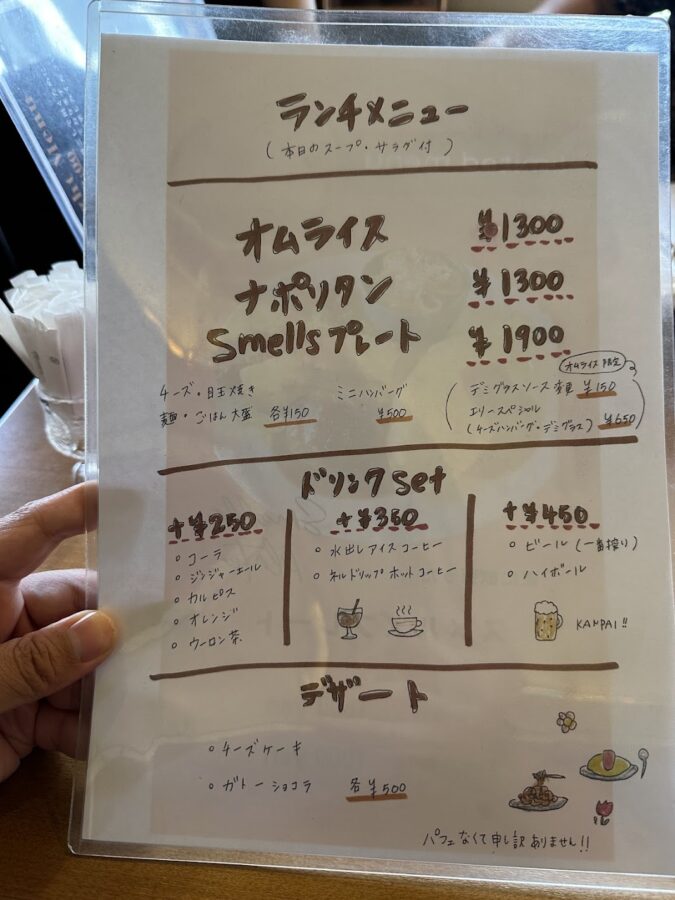 ランチメニュー
(本日のスープ・サラダ付)
オムライス ¥1300
ナポリタン ¥1300
Smellsプレート ¥1900
オムライス限定
チーズ・目玉焼き
麺・ごはん大盛 各¥150
ミニハンバーグ
¥500
デミグラスソース変更 ¥150
エリースペシャル
(チーズハンバーグ・デミグラス) ¥650
ドリンクset
+¥250
コーラ
ジンジャーエール
カルピス
オレンジ
ウーロン茶
+¥350
水出しアイスコーヒー
ネルドリップホットコーヒー
+¥450
ビール(一番搾り)
ハイボール
KANPAI!!
デザート
チーズケーキ
ガトーショコラ 各¥500
パフェなくて申し訳ありません!!